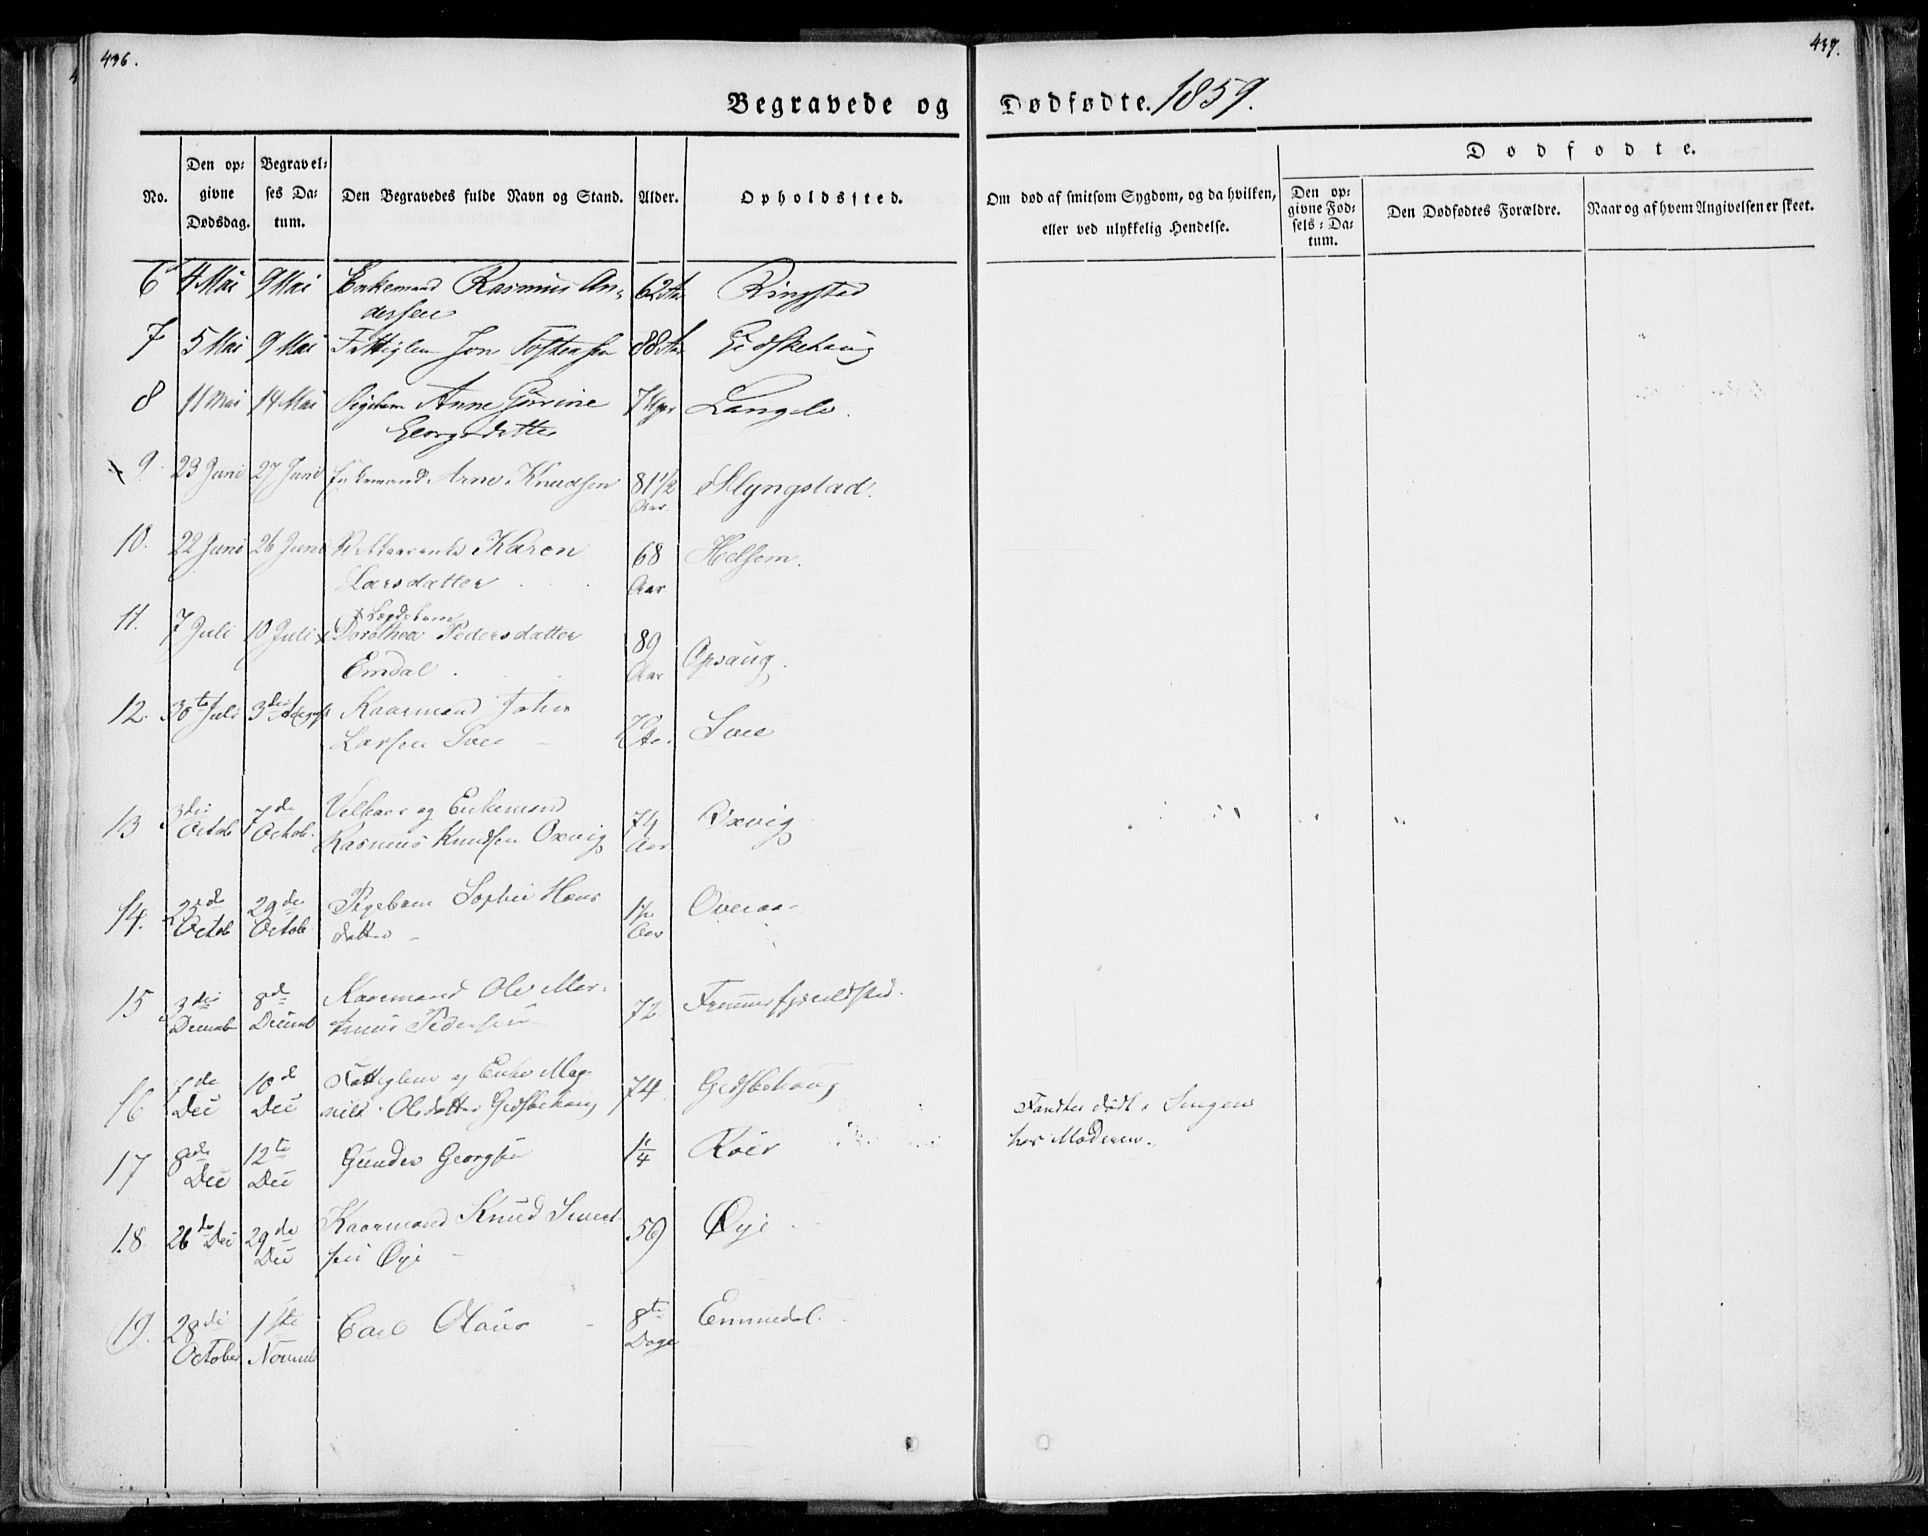 436.
437.
Begravede og Dødfødte. 1859.
No.
Den op:
givne
Dødsdag.
Begravel:
ses Da:
tum.
Den Begravedes fulde Navn og Stand.
Alder.
Opholdssted.
Om død af smitsom Sygdom, og da hvilken,
eller ved ulykkelig Hendelse.
Dødfødte.
Den op:
givne Fød:
sels: Da:
tum.
Den Dødfødtes Forældre.
Naar og af hvem Angivelsen er skeet.
6 4 Mai 9 Mai Enkemand Rasmus An= 62 Aar Ringsted
dersen
7 5 Mai 9 Mai Fattiglem Jon Tostensen 88 Aar Gidskehaug
8 11 Mai 14 Mai Pigebarn Anne Gurine Langlo.
Georgsdatter
9. 23 Juni 27 Juni Enkemand Arne Knudsen 81 1/2 Slyngstad.
Aar.
10. 22 Juni 26 Juni Karen 68 Helsem.
Larsdatter Aar
11. 7 Juli 10 Juli x Dorothea Pedersdatter 89 Opsaug.
x Lægdelem
Emdal Aar
12. 30te Juli 3die August Kaarmand
Larsen Svee Svee
13 3die 7de Velkaar og Enkemand 74 Oxvig
Octob Octob. Rasmus Knudsen Oxvig Aar
14. 25de 29de Pigebarn Sophie Hans 1/2 Overaa
Octob Octob datter Aar
15 3die 8de Kaarmand Ole Mar- 72. Fremmerfjeeldsted.
Decemb Decemb Pedersen
16 7de 10d Fattiglem og Enke Mag- 74. Gedskehaug
Dec Dec nild Olsdatter Gedskehaug
17 8de 12te Gunder Georgsen 1/4 Röer Fandtes dödt i Sengen
Dec Dec hos Moderen.
18 26de Dec 29de Kaarmand Knud 59 Øye
Dec sen Øye
19. 28de 1ste Carl Olaus 8te Emmedal.
October Novemb Dage